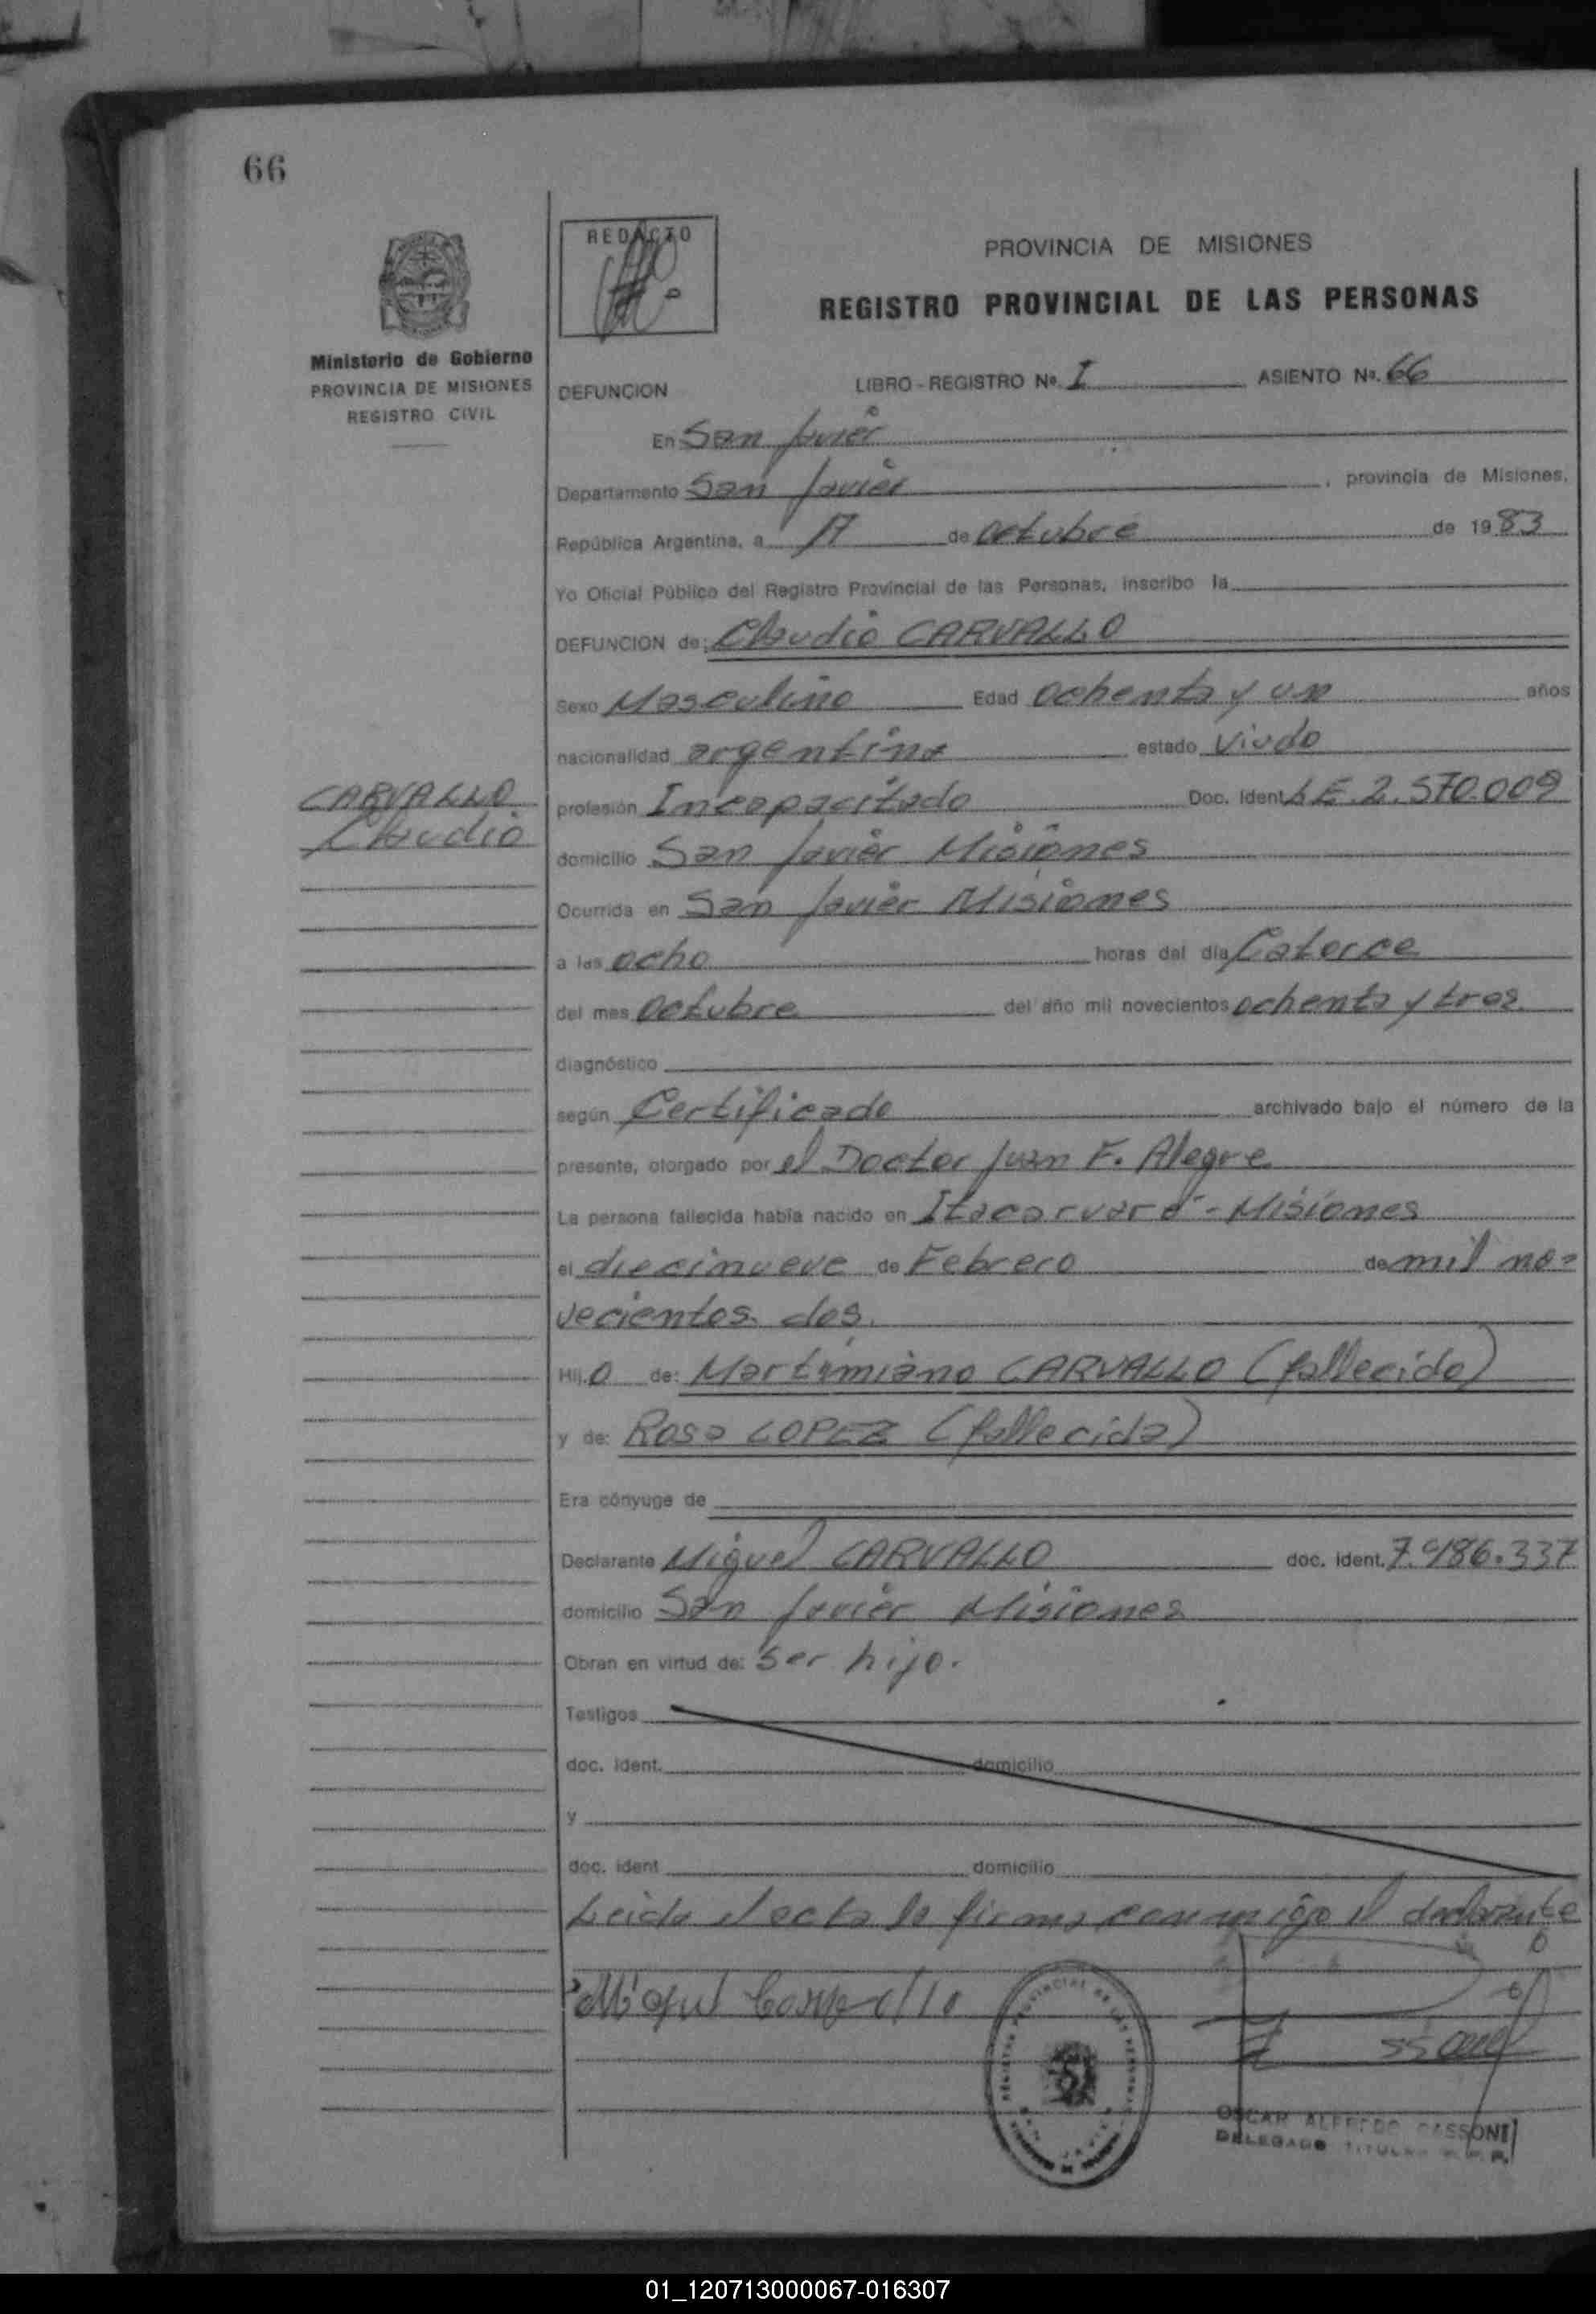 66
REDACTO
PROVINCIA DE MISIONES
REGISTRO PROVINCIAL DE LAS PERSONAS
Ministerio de Gobierno
PROVINCIA DE MISIONES
REGISTRO CIVIL
DEFUNCION LIBRO - REGISTRO Nº. I ASIENTO Nº. 66
En San Javier
Departamento San Javier, provincia de Misiones,
República Argentina, a 17 de octubre de 1983
Yo Oficial Público del Registro Provincial de las Personas, inscribo la
DEFUNCION de: Claudio CARVALLO
Sexo Masculino Edad ochenta y un años
nacionalidad argentina estado Viudo
CARVALLO
Claudio
profesión Incapacitado Doc. Ident. L.E. 2.570.009
domicilio San Javier Misiones
Ocurrida en San Javier Misiones
a las ocho horas del día Catorce
del mes Octubre del año mil novecientos ochenta y tres.
diagnóstico
según Certificado archivado bajo el número de la
presente, otorgado por el Doctor Juan F. Alegre
La persona fallecida había nacido en Itacaruaré - Misiones
el diecinueve de Febrero de mil no=
vecientos dos.
Hijo de: Martimiano CARVALLO (fallecido)
y de: Rosa LOPEZ (fallecida)
Era cónyuge de
Declarante Miguel CARVALLO doc. ident. 7.486.337
domicilio San Javier Misiones
Obran en virtud de: Ser hijo.
Testigos
doc. ident. domicilio
y
doc. ident domicilio
Leida el acta la firma conmigo el declarante
Miguel Carvallo
REGISTRO PROVINCIAL DE LAS PERSONAS
OSCAR ALFREDO CASSONE
DELEGADO TITULAR
01_120713000067-016307